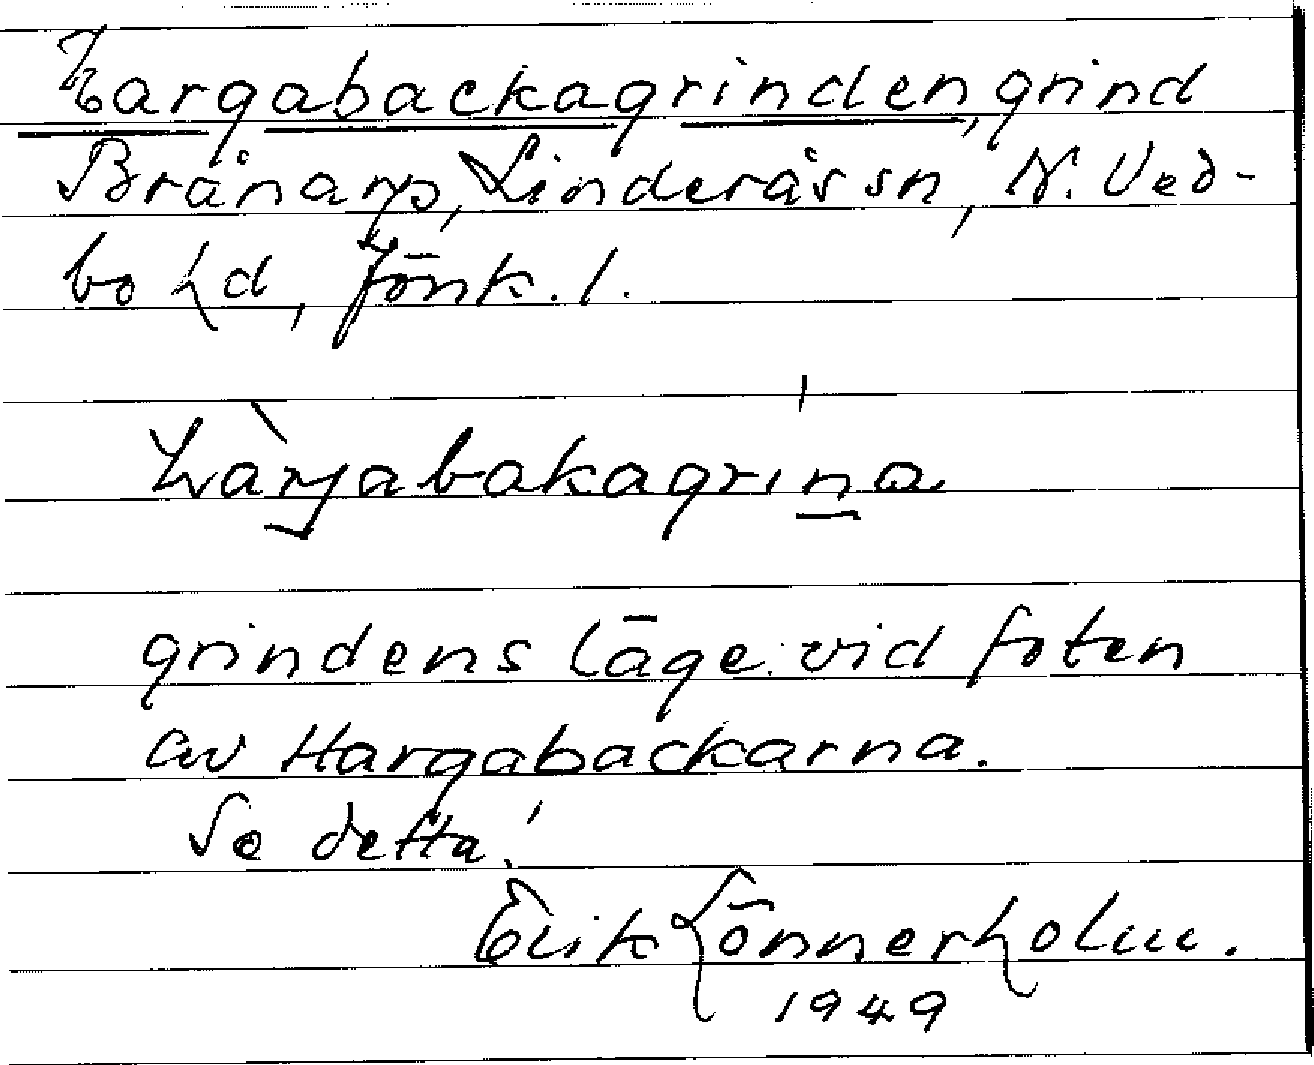 Hargabackagrinden, grind
Brånarp, Linderås sn, N. Ved-
bo hd, Jönk. l.
hàrjabakagrina
grindens läge: vid foten
av Hargabackarna.
Se detta!
Erik Lönnerholm.
1949